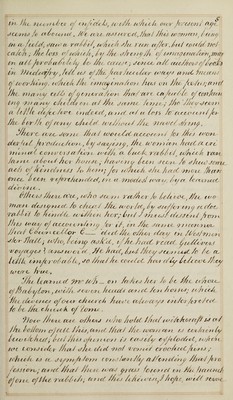 5
in the number of infidels, with which our present age
seems to abound. We are assured, that this woman, being
in a field, saw a rabbit, which she ran after, but could not
catch; the loss of which, by the strength of imagination, may
in all probability be the cause; since all authors of books
in Midwifry, tell us of the particular ways and means
of working, which the imagination has on the fetus; and
the many cells of generation that are capable of contain-
ing many children at the same time; tho' they seem
a little defective indeed, and at a loss to account for
the birth of any child without the navel string.
There are some that would account for this won-
derful production, by saying, the woman had a cri-
minal conversation with a buck rabbit, which ran
tame about her house; having been seen to show some
acts of kindness to him; for which she had more than
once been reprehended, in a modest way, by a learned
divine.
Others there are, who seem rather to believe, the wo-
man designed to cheat the world, by
rabbit to kindle within her; but I must dissent from
this way of reasoning
that Councellor C— did the other day in Westmin-
ster Hall; who, being asked, if he had read Gulliver's
voyages? answered He had, but they seemed to be a
little improbable, so that he could hardly believe they
were true.
The learned Mr. Wh—on takes her to be the whore
of Babylon, with seven heads and ten horns; which
the divines of our church have always interpreted
to be the church of Rome.
Now there are others who hold that witchcraft is at
the bottom of all this, and that the woman is certainly
bewitched; but this opinion is easily exploded, when
we consider that she did not vomit crooked pins;
which is a symptom constantly attending that pro-
fession; and that there was grass found in the
of one of the rabbits; and this likewise, I hope, will